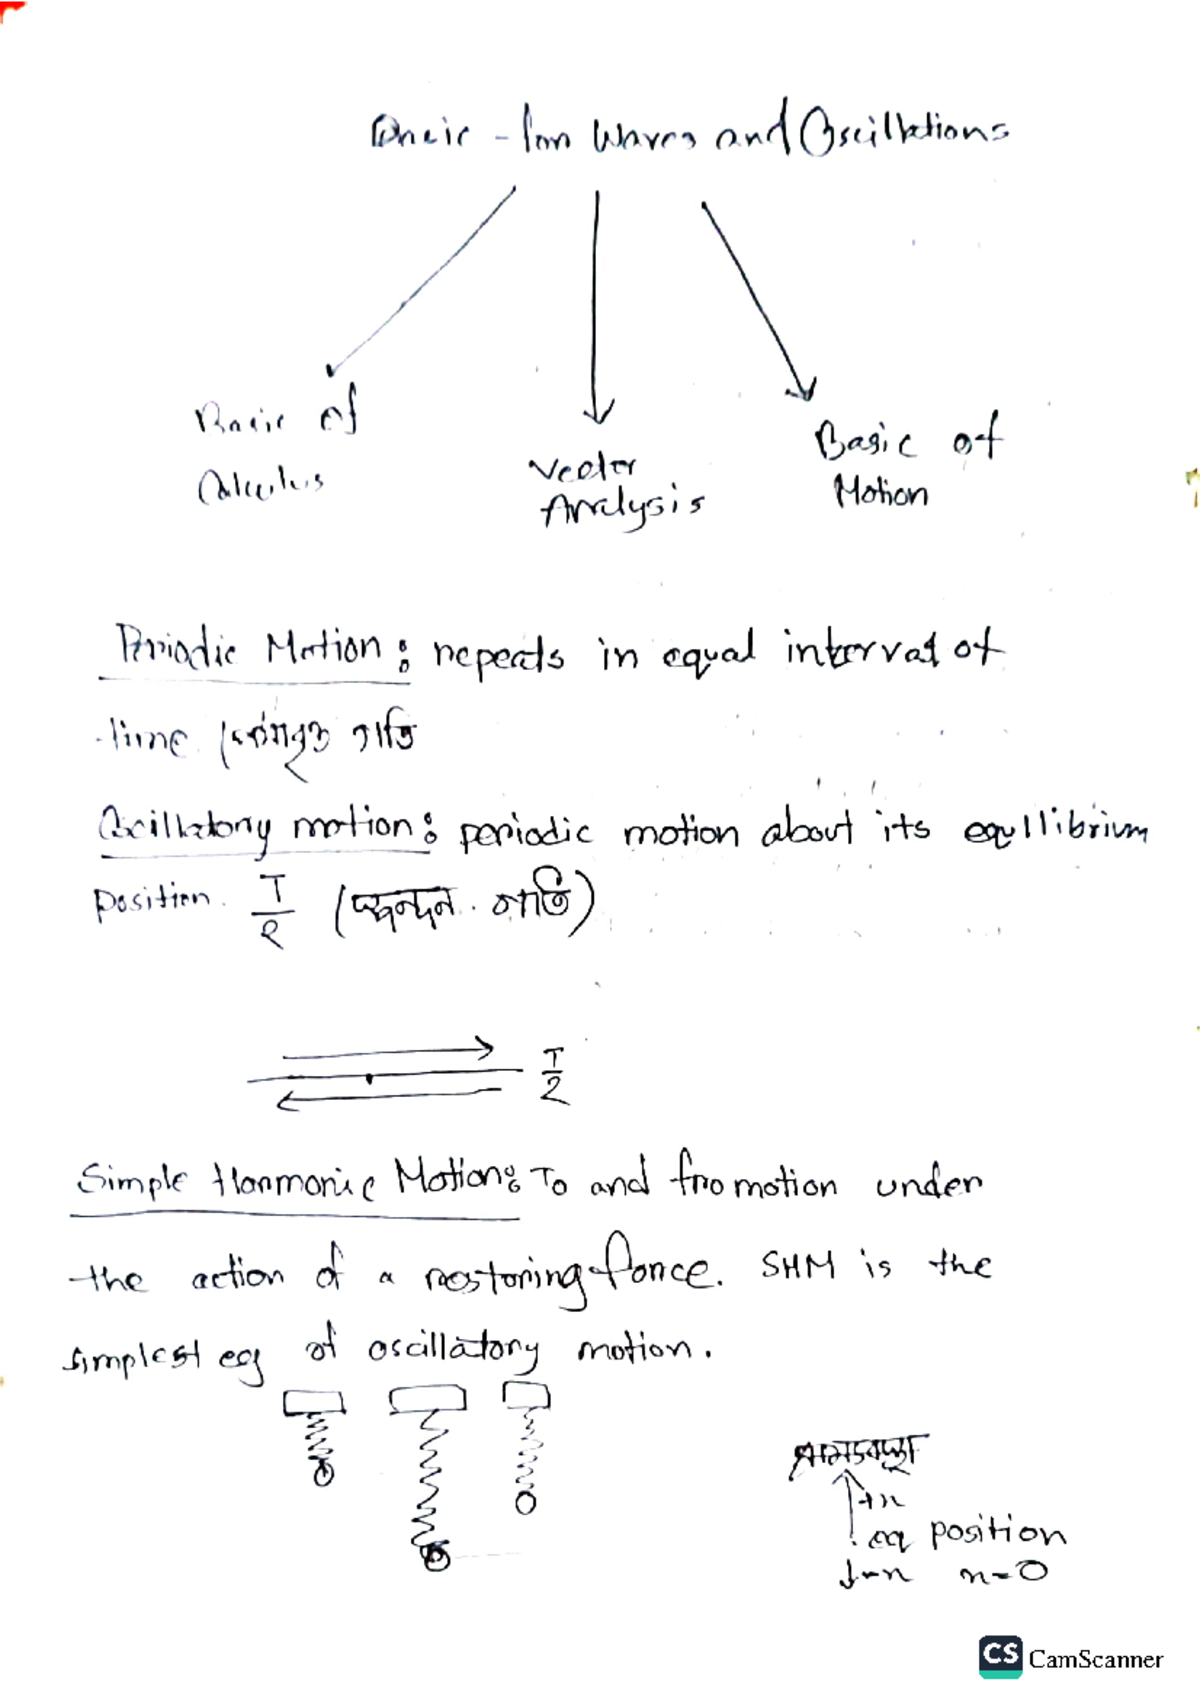 Basic - for Waves and Oscillations
Basic of
Calculus
Vector
Analysis
Basic of
Motion
Periodic Motion: repeats in equal interval of
time গতি
Oscillatory motion: periodic motion about its equllibrium
position. T/2 (স্পন্দন গতি)
T/2
Simple Harmonic Motion: To and fro motion under
the action of a restoring force. SHM is the
simplest eg of oscillatory motion.
+x
eq position
-x x=0
CS CamScanner